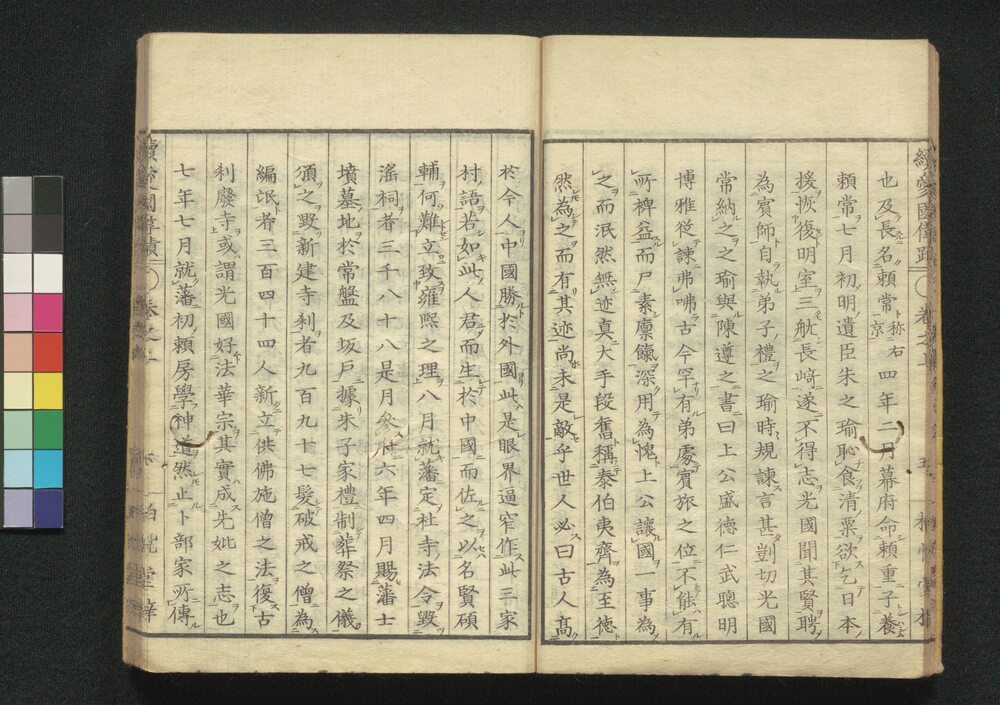 也及長名頼常稱右京四年二月幕府命頼重子養
頼常七月初明遺臣朱之瑜恥食清粟欲乞日本
援恢復明室三航長﨑遂不得志光國聞其賢聘
為賓師自執弟子禮之瑜時規諫言甚剴切光國
常納之之瑜與陳遵之書曰上公盛德仁武聰明
博雅從諫弗咈古今罕有弟處賓旅之位不能有
所裨益而尸素廩餼深用為愧上公讓國一事為
之而泯然無迹真大手段舊稱泰伯夷齊為至德
然為之而有其迹尚未是敵乎世人必曰古人高
於今人中國勝於外國此是眼界逼窄作此三家
村語若如此人君而生於中國而佐之以名賢碩
輔何難立致雍熙之理八月就藩定社寺法令毀
滛祠者三千八十八是月參府六年四月賜藩士
墳墓地於常盤及坂戸據朱子家禮制葬祭之儀
頒之毀新建寺刹者九百九十七髮破戒之僧為
編氓者三百四十四人新立供佛施僧之法復古
刹廢寺或謂光國好法華宗其實成先妣之志也
七年七月就藩初頼房學神道然止卜部家所傳